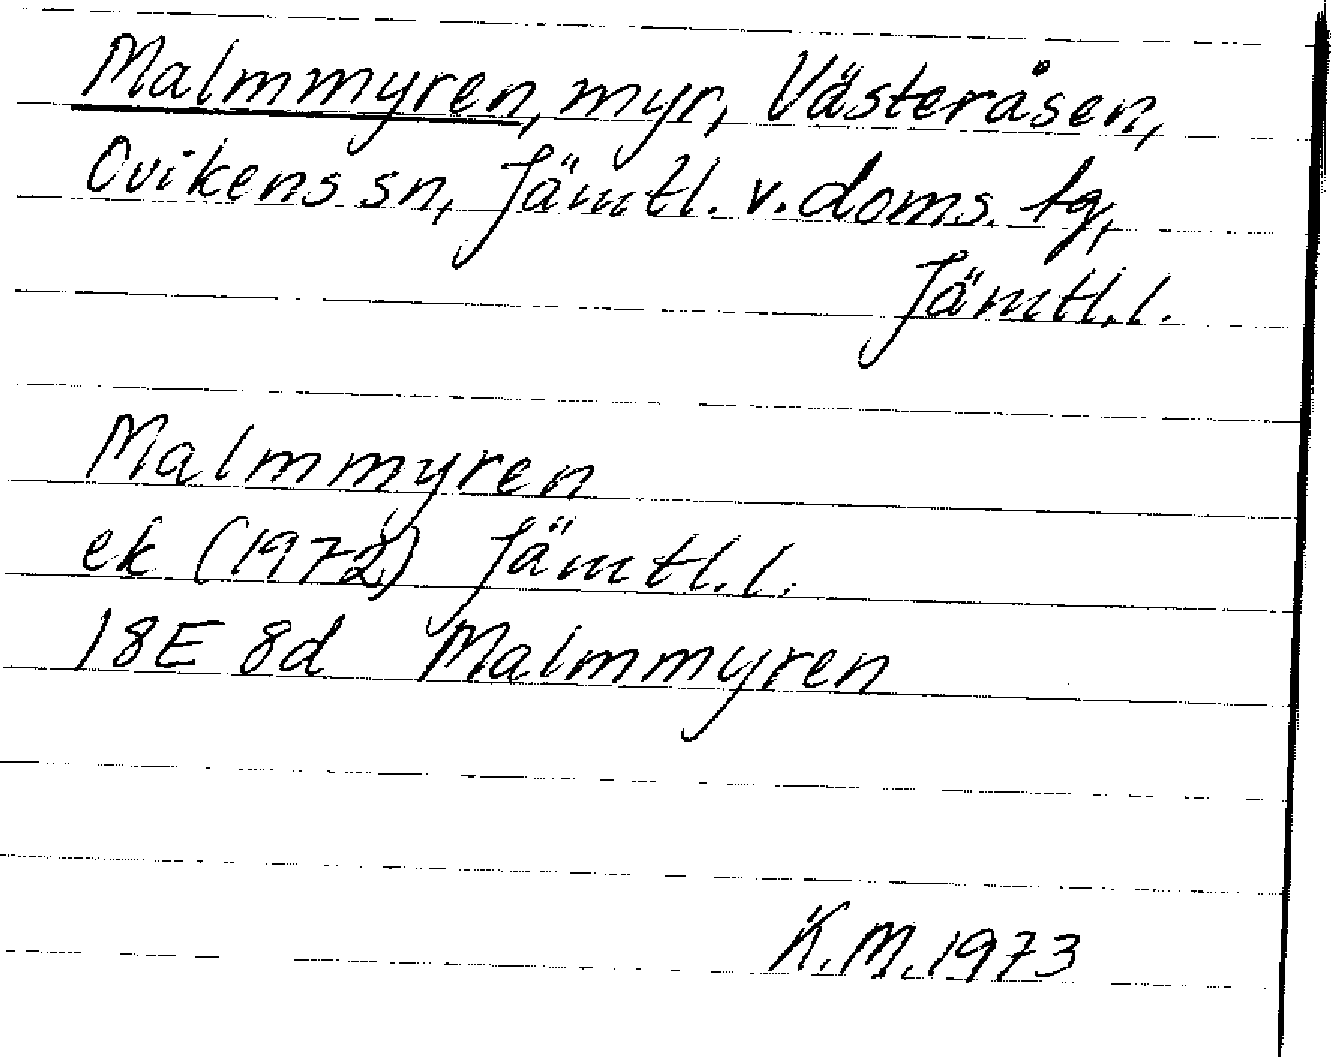 Malmmyren, myr, Västeråsen,
Ovikens sn, Jämtl. v. doms. tg,
Jämtl. l.
Malmmyren
ek (1972) Jämtl. l.
18E 8d Malmmyren
K.M. 1973